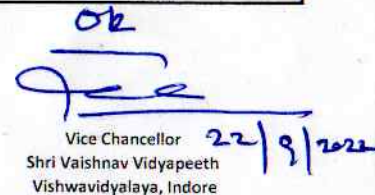 OK
Vice Chancellor 22/9/2022
Shri Vaishnav Vidyapeeth
Vishwavidyalaya, Indore